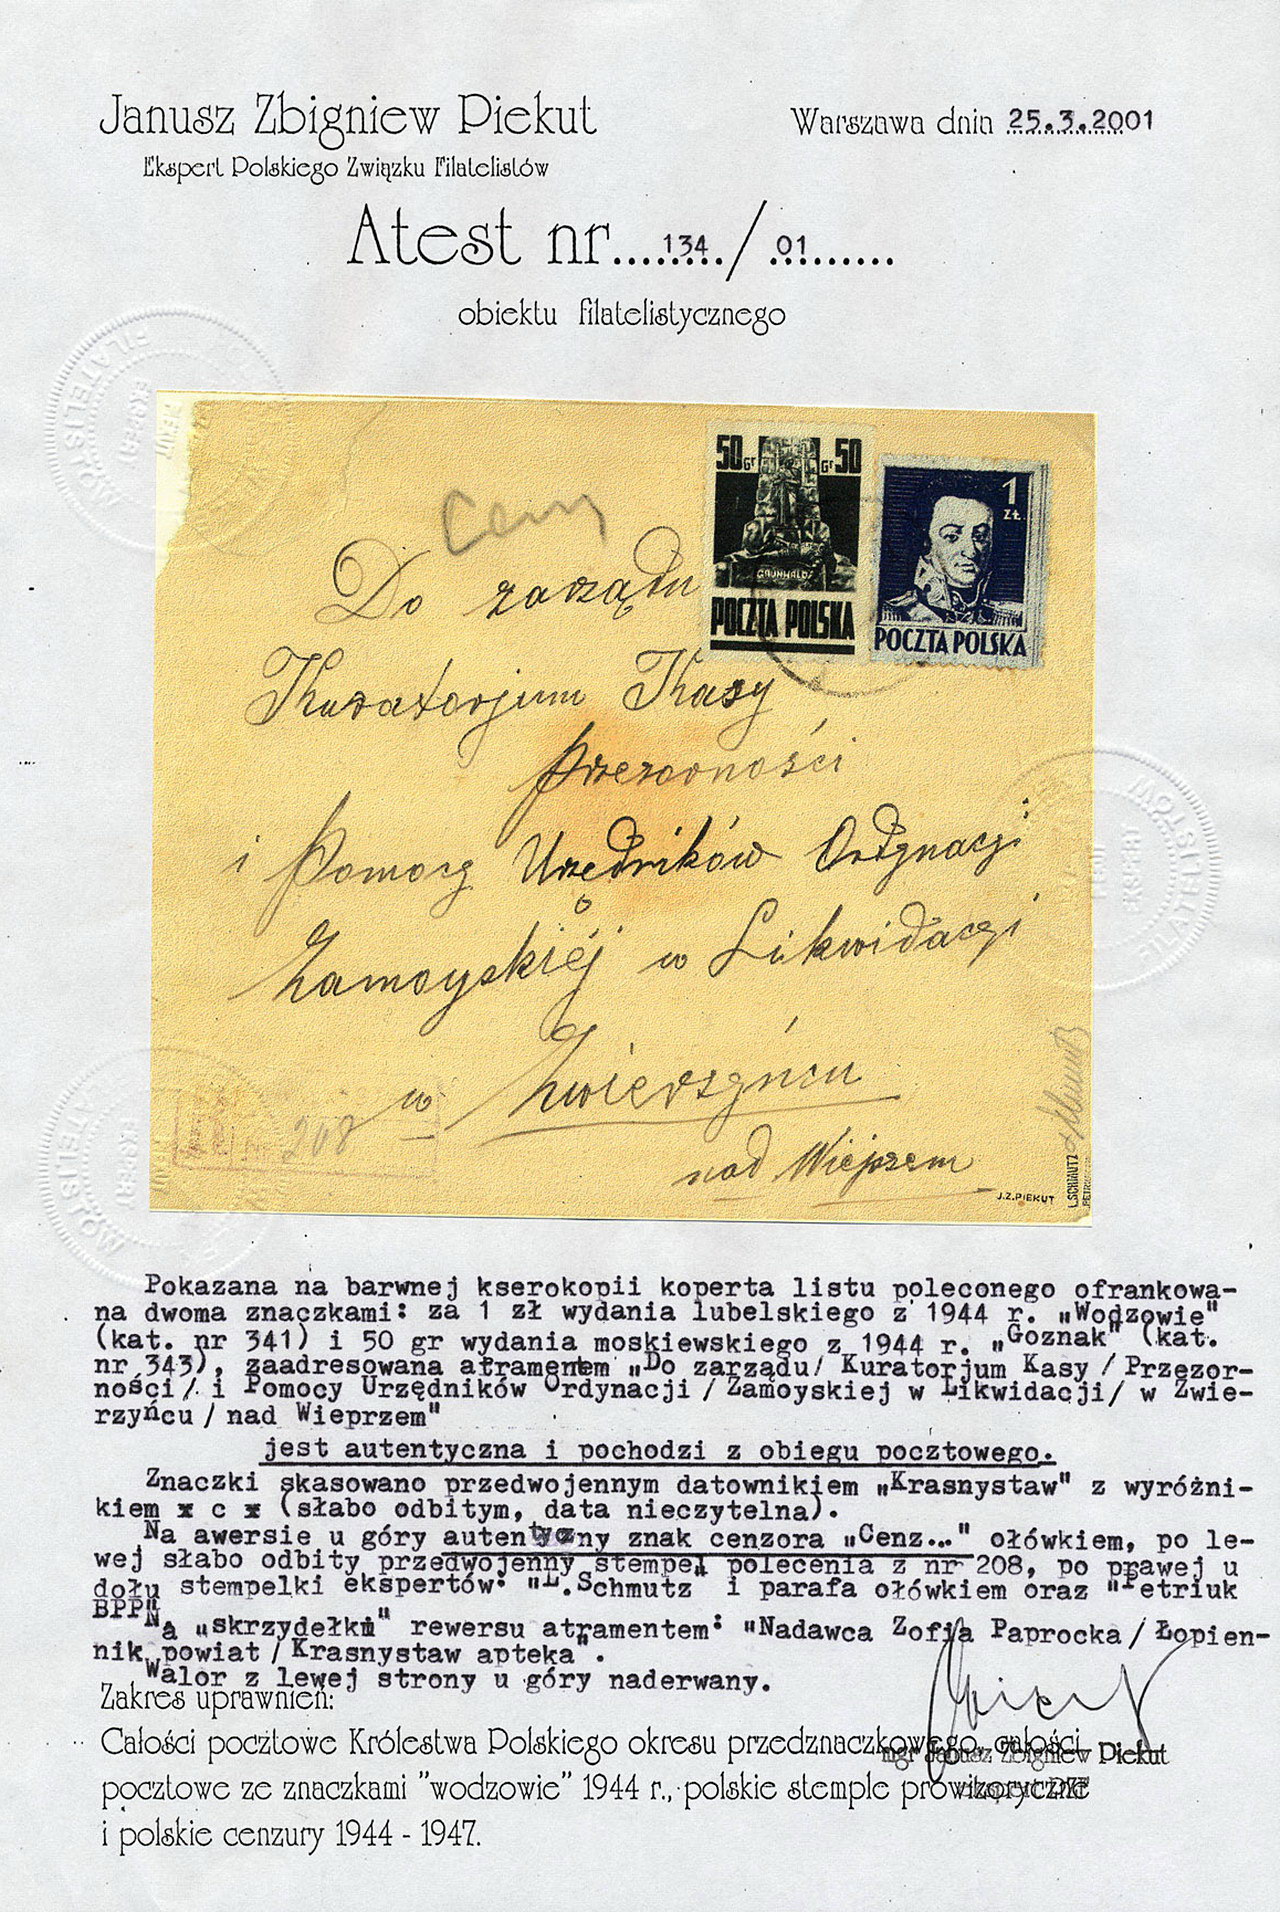 Janusz Zbigniew Piekut
Warszawa dnia 25.3.2001
Ekspert Polskiego Związku Filatelistów
Atest nr 134 / 01
obiektu filatelistycznego
FILATELISTÓW
EKSPERT
50 Gr Gr 50
GRUNWALD
POCZTA POLSKA
1 ZŁ.
POCZTA POLSKA
Cenz
Do zarządu
Kuratorjum Kasy
Przezorności
i Pomocy Urzędników Ordynacji
Zamoyskiej w Likwidacji
w Zwierzyńcu
nad Wieprzem
208
J.Z.PIEKUT
L.SCHMUTZ
Pokazana na barwnej kserokopii koperta listu poleconego ofrankowa-
na dwoma znaczkami: za 1 zł wydania lubelskiego z 1944 r. „Wodzowie"
(kat. nr 341) i 50 gr wydania moskiewskiego z 1944 r. „Goznak" (kat.
nr 343), zaadresowana atramentem „Do zarządu/ Kuratorjum Kasy / Przezor-
ności/ i Pomocy Urzędników Ordynacji / Zamoyskiej w Likwidacji/ w Zwie-
rzyńcu / nad Wieprzem"
jest autentyczna i pochodzi z obiegu pocztowego.
Znaczki skasowano przedwojennym datownikiem „Krasnystaw" z wyróżni-
kiem x c x (słabo odbitym, data nieczytelna).
Na awersie u góry autentyczny znak cenzora „Cenz..." ołówkiem, po le-
wej słabo odbity przedwojenny stempel polecenia z nr 208, po prawej u
dołu stempelki ekspertów: "L.Schmutz" i parafa ołówkiem oraz "Petriuk
BPP".
Na „skrzydełku" rewersu atramentem: "Nadawca Zofja Paprocka / Łopien-
nik powiat / Krasnystaw apteka".
Walor z lewej strony u góry naderwany.
Zakres uprawnień:
Całości pocztowe Królestwa Polskiego okresu przedznaczkowego, całości
mgr Janusz Zbigniew Piekut
pocztowe ze znaczkami "wodzowie" 1944 r., polskie stemple prowizoryczne
i polskie cenzury 1944 - 1947.